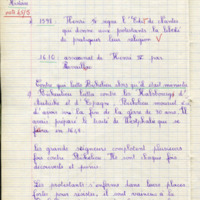 Histoire
1598 Henri IV signe l'Edit de Nantes
qui donne aux protestants la liberté
de pratiquer leur religion
1610 assassinat de Henri IV par
Ravaillac
Contre qui lutte Richelieu
Richelieu lutta contre les Habsbourg d'
Autriche et d'Espagne. Richelieu mourut
avant la fin de la guerre de 30 ans. Il
avait préparé le traité de Westphalie qui se
en 1648
Les grands seigneurs complotèrent plusieurs
fois contre Richelieu. Ils sont chaque fois
découverts et punis.
Les protestants enfermés dans leurs places
fortes pour résister, et sont